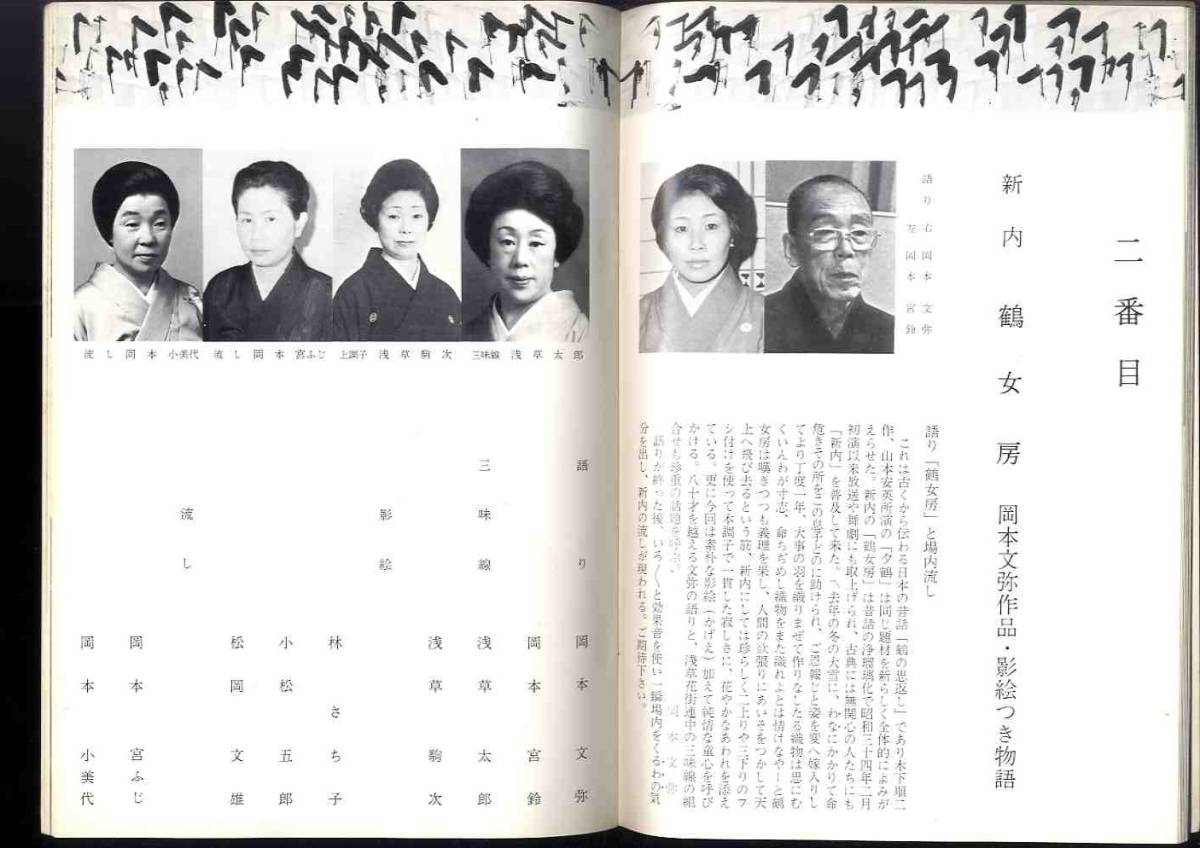 二番目
新内 鶴女房 岡本文弥作品・影絵つき物語
語り 右 岡本文弥
左 岡本宮鈴
語り「鶴女房」と場内流し
これは古くから伝わる日本の昔話「鶴の恩返し」であり木下順二
作、山本安英所演の「夕鶴」は同じ題材を新らしく全体的によみが
えらせた。新内の「鶴女房」は昔話の浄瑠璃化で昭和三十四年二月
初演以来放送や舞劇にも取上げられ、古典には無関心の人たちにも
「新内」を普及して来た。〽去年の冬の大雪に、わなにかかりて命
危きその所をこの息子どのに助けられ、ご恩報じと姿を変へ嫁入りし
てより丁度一年、大事の羽を織りまぜて作りなしたる織物は思にむ
くいんわが寸志、命ちぢめし織物をまた織れよとは情けなや—と鶴
女房は嘆きつつも義理を果し、人間の欲張りにあいそをつかして天
上へ飛び去るという筋、新内にしては珍らしく二上りや三下りのフ
シ付けを使つて本調子で一貫した寂しさに、花やかなあわれを添え
ている。更に今回は素朴な影絵(かげえ)加えて純情な童心を呼び
かける。八十才を越える文弥の語りと、浅草花街連中の三味線の組
合せも珍重の話題を呼ぶ。
語りが終った後、いろ〱と効果音を使い一瞬場内をくるわの気
分を出し、新内の流しが現われる。ご期待下さい。
岡本文弥
三味線 浅草太郎
上調子 浅草駒次
流し 岡本宮ふじ
流し 岡本小美代
語り 岡本文弥
岡本宮鈴
三味線 浅草太郎
浅草駒次
影絵 林さち子
小松五郎
松岡文雄
流し 岡本宮ふじ
岡本小美代